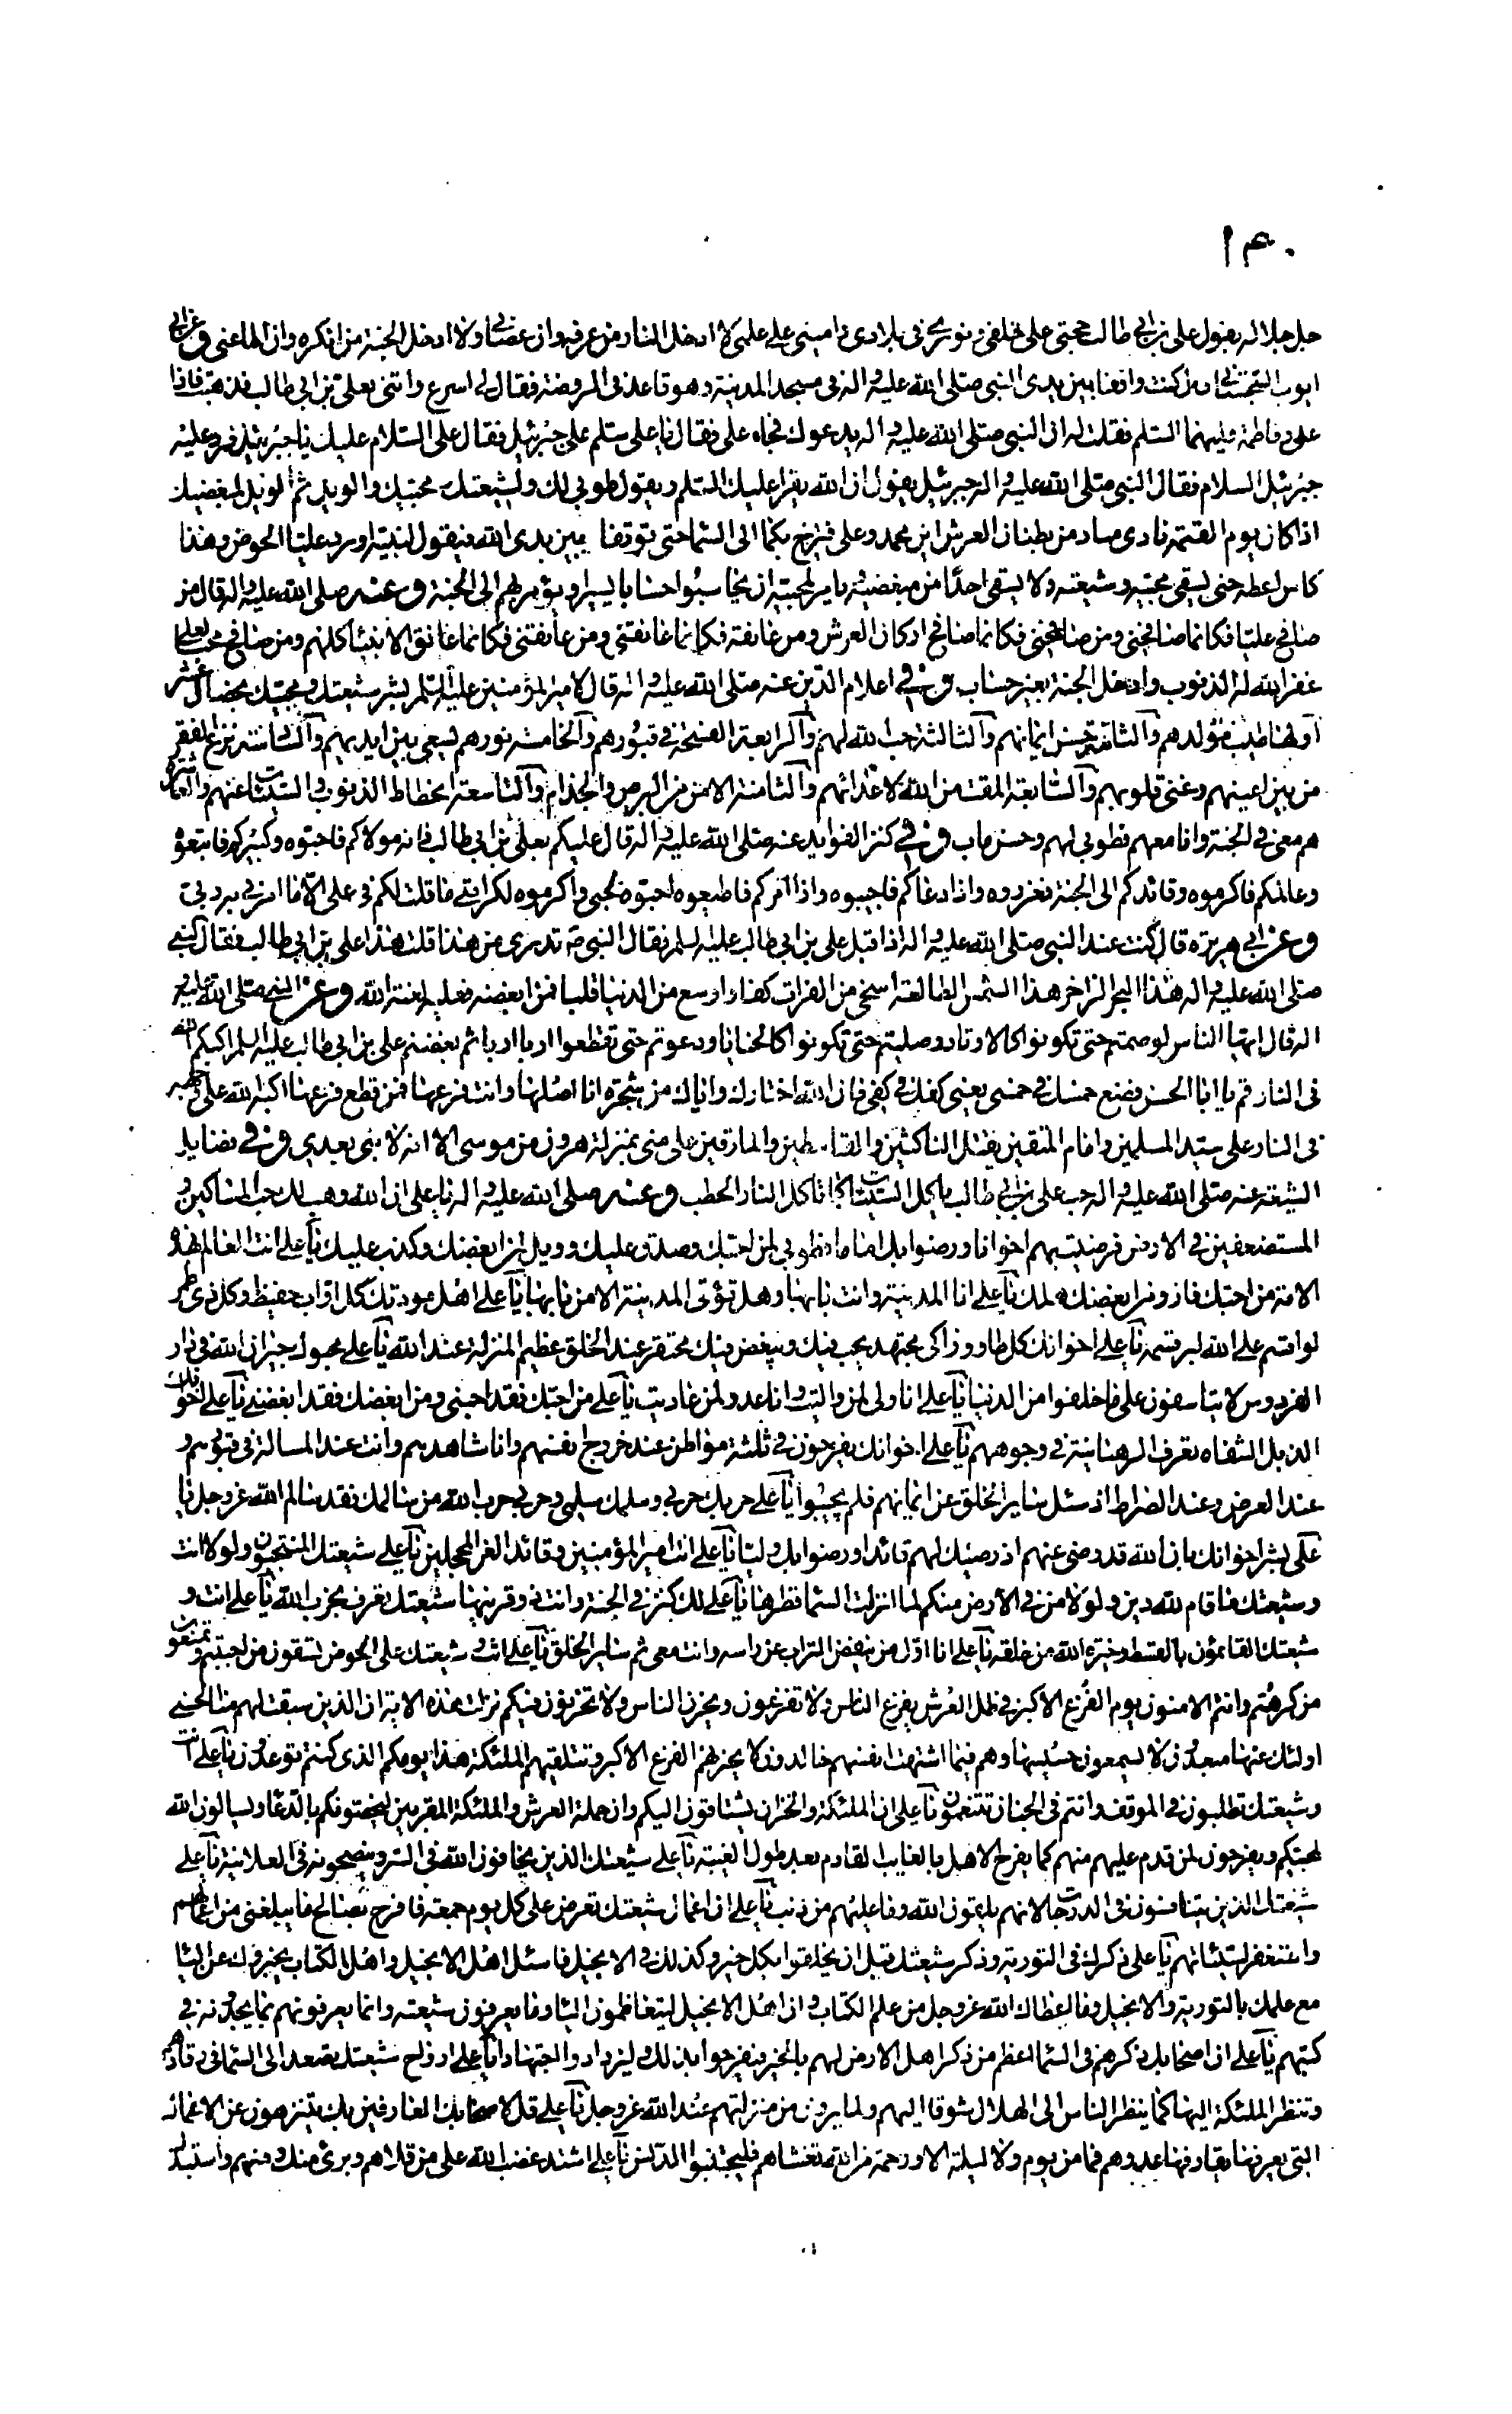 ١٣٠
جل جلاله يقول على بن ابى طالب حجتى على خلقى و نورى فى بلادى و امينى على علمى لا ادخل النار من عرفه وان عصانى ولا ادخل الجنة من انكره وان اطاعنى وعن ابى
ايوب السجستانى قال كنت واقفا بين يدى النبى صلى الله عليه واله فى مسجد المدينة وهو قاعد فى الروضة فقال لى اسرع واتنى بعلى بن ابى طالب فذهبت فاذا
على وفاطمة عليهما السلم فقلت له ان النبى صلى الله عليه واله يدعوك فجاء على فقال يا على سلم على جبرئيل فقال على السلام عليك يا جبرئيل فرد عليه
جبرئيل السلام فقال النبى صلى الله عليه واله جبرئيل يقول ان الله يقرا عليك السلم ويقول طوبى لك ولشيعتك ومحبيك والويل ثم الويل لمبغضيك
اذا كان يوم القيمة نادى مناد من بطنان العرش اين محمد وعلى فيزخ بكما الى السما حتى توقفا بين يدى الله فيقول لنبيه اورد عليا الحوض وهذا
كاس اعطه حتى يسقى محبيه وشيعته ولا يسقى احدا من مبغضيه ويامر لمحبيه ان يحاسبوا حسابا يسيرا ويؤمر بهم الى الجنة وعنه صلى الله عليه واله قال من
صافح عليا فكانما صافحنى ومن صافحنى فكانما صافح اركان العرش ومن عانقه فكانما عانقنى ومن عانقنى فكانما عانق الانبيئا كلهم ومن صافح محبا لعلى
غفر الله له الذنوب وادخل الجنة بغير حساب وفى اعلام الدين عنه صلى الله عليه واله قال لامير المؤمنين عليه السلم بشر شيعتك ومحبيك بخصال عشر
اولها طيب مولدهم والثانية حسن ايمانهم والثالثة حب الله لهم والرابعة الفسحة فى قبورهم والخامسة نورهم يسعى بين ايديهم والسادسة نزع الفقر
من بين اعينهم وغنى قلوبهم والسابعة المقت من الله لاعدائهم والثامنة الامن من البرص والجذام والتاسعة انحطاط الذنوب والسيئات عنهم والعاشرة
هم معى فى الجنة وانا معهم فطوبى لهم وحسن ماب وفى كنز الفوايد عنه صلى الله عليه واله قال عليكم بعلى بن ابى طالب فانه مولاكم فاحبوه وكبيركم فاتبعوه
وعالمكم فاكرموه وقائدكم الى الجنة فعززوه واذا دعاكم فاجيبوه واذا امركم فاطيعوه احبوه لحبى واكرموه لكرامتى ما قلت لكم فى على الا ما امرنى به ربى
وعن ابى هريره قال كنت عند النبى صلى الله عليه واله اذ اقبل على بن ابى طالب عليه السلم فقال النبى ص تدرى من هذا قلت هذا على بن ابى طالب فقال النبى
صلى الله عليه واله هذا البحر الزاخر هذا الشمس الطالعة اسخى من الفرات كفا واوسع من الدنيا قلبا فمن ابغضه فعليه لعنة الله وعن النبى صلى الله عليه و
اله قال ايها الناس لو صمتم حتى تكونوا كالاوتاد وصليتم حتى تكونوا كالحنايا ودعوتم حتى تقطعوا اربا اربا ثم بغضتم على بن ابى طالب عليه السلم اكبكم الله
فى النار قم يا ابا الحسن فضع خمسك فى خمسى يعنى كفك فى كفى فان الله اختارنى واياك من شجرة انا اصلها وانت فرعها فمن قطع فرعها اكبه الله على وجهه
فى النار على سيد المسلمين وامام المتقين يقتل الناكثين والقاسطين والمارقين على منى بمنزلة هرون من موسى الا انه لا نبى بعدى وفى فضايل
الشيعة عنه صلى الله عليه واله حب على بن ابى طالب ياكل السيئات كما تاكل النار الحطب وعنه صلى الله عليه واله يا على ان الله وهب لك حب المساكين و
المستضعفين فى الارض فرضيت بهم اخوانا ورضوا بك اماما فطوبى لمن احبك وصدق عليك وويل لمن ابغضك وكذب عليك يا على انت العالم لهذه
الامة من احبك فاز ومن ابغضك هلك يا على انا المدينة وانت بابها وهل تؤتى المدينة الا من بابها يا على اهل مودتك كل اواب حفيظ وكل ذى طمر
لو اقسم على الله لبر قسمه يا على اخوانك كل طاو وزاكى مجتهد يحب فيك ويبغض فيك محتقر عند الخلق عظيم المنزلة عند الله يا على محبوك جيران الله فى دار
الفردوس لا يتاسفون على ما خلفوا من الدنيا يا على انا ولى لمن واليت وانا عدو لمن عاديت يا على من احبك فقد احبنى ومن ابغضك فقد ابغضنى يا على اخوانك
الذبل الشفاه تعرف الرهبانية فى وجوههم يا على اخوانك يفرحون فى ثلثة مواطن عند خروج انفسهم وانا شاهدهم وانت عند المسالة فى قبورهم و
عند العرض وعند الصراط اذ سئل ساير الخلق عن ايمانهم فلم يجيبوا يا على حربك حربى وسلمك سلمى وحربى حرب الله من سالمك فقد سالم الله عز وجل يا
على بشر اخوانك بان الله قد رضى عنهم اذ رضيك لهم قائدا ورضوا بك وليا يا على انت امير المؤمنين وقائد الغر المحجلين يا على شيعتك المنتجبون ولولا انت
وشيعتك ما قام لله دين ولولا من فى الارض منكم لما انزلت السما قطرها يا على لك كنز فى الجنة وانت ذو قرنيها شيعتك تعرف بحزب الله يا على انت و
شيعتك القائمون بالقسط وخيرة الله من خلقه يا على انا اول من ينفض التراب عن راسه وانت معى ثم ساير الخلق يا على انت وشيعتك على الحوض تسقون من احببتم وتمنعون
من كرهتم وانتم الامنون يوم الفزع الاكبر فى ظل العرش يفزع الناس ولا تفزعون ويحزن الناس ولا تحزنون فيكم نزلت هذه الاية ان الذين سبقت لهم منا الحسنى
اولئك عنها مبعدون لا يسمعون حسيسها وهم فيما اشتهت انفسهم خالدون لا يحزنهم الفزع الاكبر وتتلقيهم الملئكة هذا يومكم الذى كنتم توعدون يا على انت
وشيعتك تطلبون فى الموقف وانتم فى الجنان تتنعمون يا على ان الملئكة والخزان يشتاقون اليكم وان حملة العرش والملئكة المقربين ليخصونكم بالدعا ويسالون الله
لمحبيكم ويفرحون لمن قدم عليهم منهم كما يفرح الاهل بالغايب القادم بعد طول الغيبة يا على شيعتك الذين يخافون الله فى السر وينصحونه فى العلانية يا على
شيعتك الذين يتنافسون فى الدرجات لانهم يلقون الله وما عليهم من ذنب يا على ان اعمال شيعتك تعرض على كل يوم جمعة فافرح بصالح ما يبلغنى من اعمالهم
واستغفر لسيئاتهم يا على ذكرك فى التورية وذكر شيعتك قبل ان يخلقوا بكل خير وكذلك فى الانجيل فاسئل اهل الانجيل واهل الكتاب يخبروك عن اليا
مع علمك بالتورية والانجيل وما اعطاك الله عز وجل من علم الكتاب وان اهل الانجيل ليتعاظمون اليا وما يعرفون شيعته وانما يعرفونهم بما يجدونه فى
كتبهم يا على ان اصحابك ذكرهم فى السما اعظم من ذكر اهل الارض لهم بالخير فيفرحوا بذلك وليزدادوا اجتهادا يا على ارواح شيعتك تصعد الى السما فى رقادهم
وتنظر الملئكة اليها كما ينظر الناس الى الهلال شوقا اليهم ولما يرون من منزلتهم عند الله عز وجل يا على قل لاصحابك العارفين بك يتنزهون عن الاعمال
التى يعرفها يقارفها عدوهم فما من يوم ولا ليلة الا ورحمة من الله تغشاهم فليجتنبوا الدنس يا على اشتد غضب الله على من قلاهم وبرئ منك ومنهم واستبدل